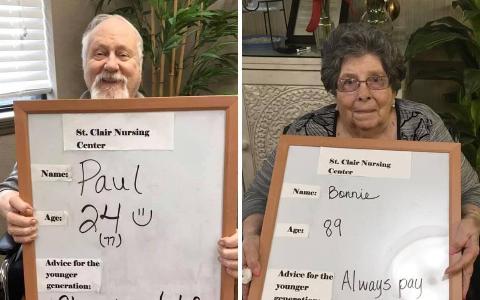 St. Clair Nursing
Center
Name: Paul
Age: 24
(77)
Advice for the
younger
generation:
St. Clair Nursing
Center
Name: Bonnie
Age: 89
Advice for the
younger
generation:
Always pay